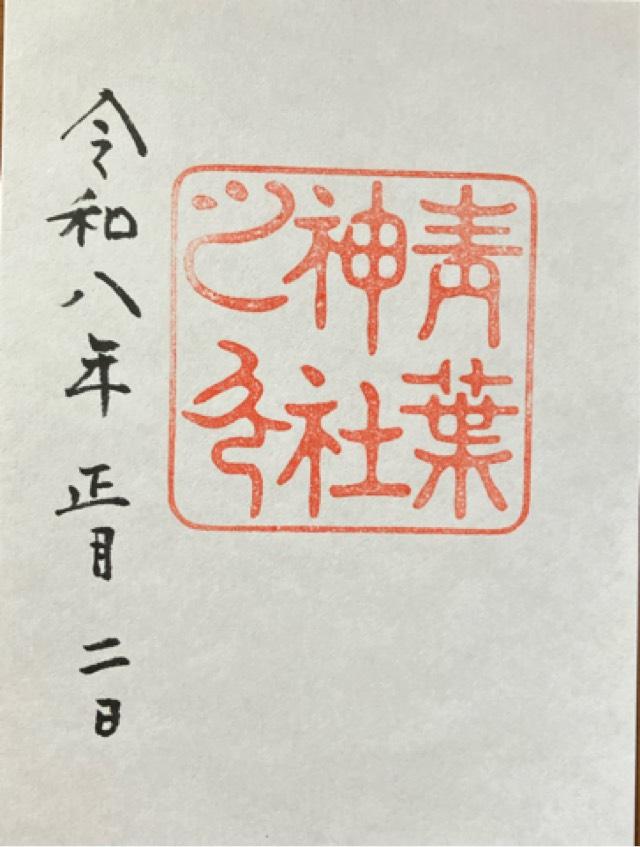 青葉
神社
之印
令和八年 正月 二日